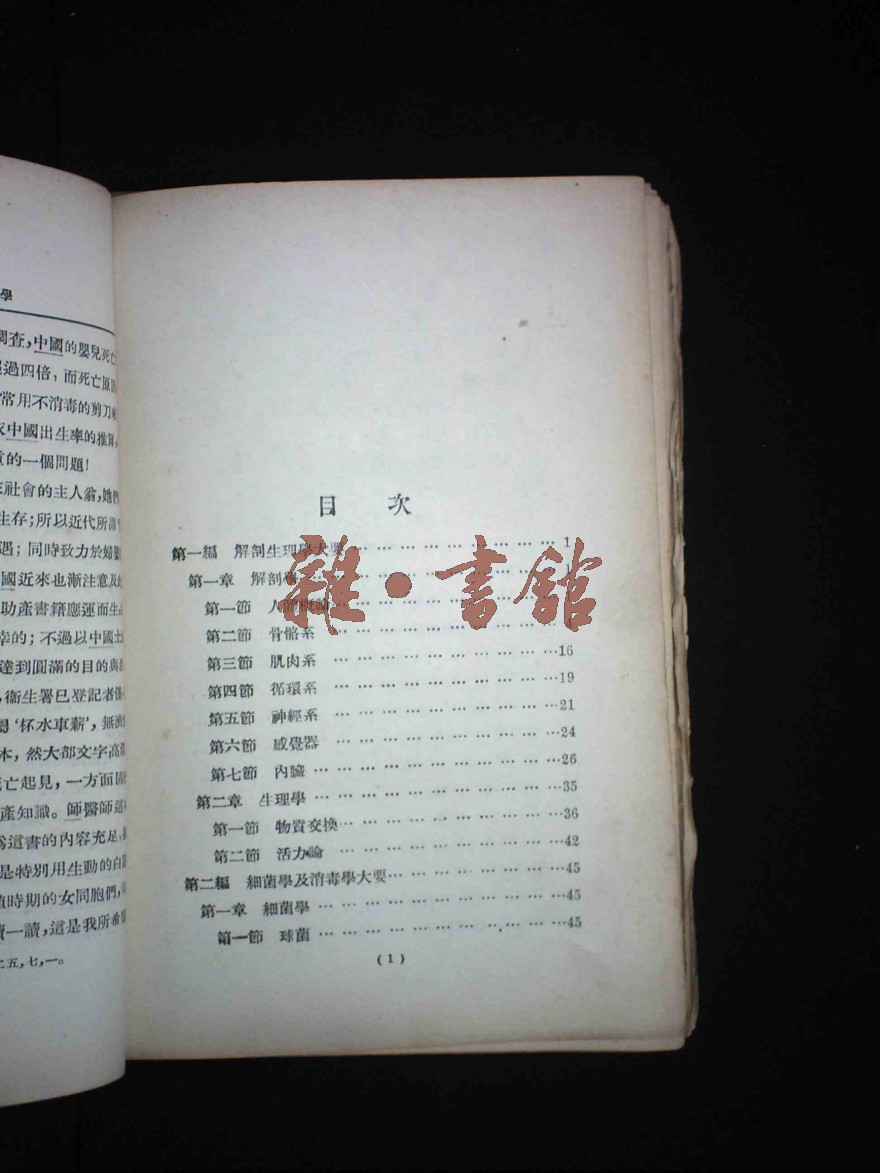 學
調查,中國的嬰兒死亡
超過四倍,而死亡原因
常用不消毒的剪刀
中國出生率的推算,
的一個問題!
社會的主人翁,她們
生存;所以近代所謂
遇;同時致力於婦嬰
國近來也漸注意及
助產書籍應運而生
幸的;不過以中國土
達到圓滿的目的與
,衞生署已登記者僅
‘杯水車薪’,無濟
本,然大都文字高深
死亡起見,一方面固
產知識。師醫師
這書的內容充足,
是特別用生動的白話
時期的女同胞們,
讀一讀,這是我所希望
五,七,一。
目 次
第一編 解剖生理學大要 … … … … … … … … … 1
第一章 解剖學 … … … … … … … … … … 1
第一節 人體概論
第二節 骨骼系
第三節 肌肉系 … … … … … … … … … …16
第四節 循環系 … … … … … … … … … …19
第五節 神經系 … … … … … … … … … …21
第六節 感覺器 … … … … … … … … … …24
第七節 內臟 … … … … … … … … … … …26
第二章 生理學 … … … … … … … … … … …35
第一節 物質交換… … … … … … … … … …36
第二節 活力論 … … … … … … … … … …42
第二編 細菌學及消毒學大要… … … … … … … …45
第一章 細菌學 … … … … … … … … … … …45
第一節 球菌 … … … … … … … … … … …45
(1)
雜·書館